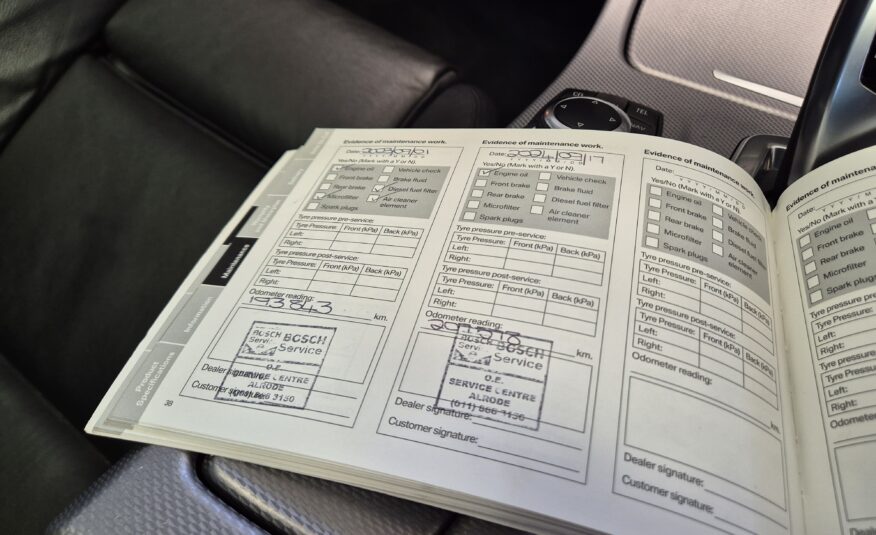 CD
TEL
Evidence of maintenance work.
Date: 2023/09/01
Y Y Y Y / M M / D D
Yes/No (Mark with a Y or N).
Engine oil
Vehicle check
Front brake
Brake fluid
Rear brake
Diesel fuel filter
Microfilter
Air cleaner
element
Spark plugs
Tyre pressure pre-service:
Tyre Pressure: Front (kPa) Back (kPa)
Left:
Right:
Tyre pressure post-service:
Tyre Pressure: Front (kPa) Back (kPa)
Left:
Right:
Odometer reading:
193843 km.
BOSCH
Service
O.E.
SERVICE CENTRE
ALRODE
Dealer signature:
Customer signature:
38
Evidence of maintenance work.
Date:
Yes/No (Mark with a Y or N).
Engine oil
Vehicle check
Front brake
Brake fluid
Rear brake
Diesel fuel filter
Microfilter
Air cleaner
element
Spark plugs
Tyre pressure pre-service:
Tyre Pressure: Front (kPa) Back (kPa)
Left:
Right:
Tyre pressure post-service:
Tyre Pressure: Front (kPa) Back (kPa)
Left:
Right:
Odometer reading:
km.
BOSCH
Service
O.E.
SERVICE CENTRE
ALRODE
Dealer signature:
Customer signature:
Evidence of maintenance work.
Date:
Y Y Y Y / M M / D D
Yes/No (Mark with a Y or N).
Engine oil
Vehicle check
Front brake
Brake fluid
Rear brake
Diesel fuel filter
Microfilter
Air cleaner
element
Spark plugs
Tyre pressure pre-service:
Tyre Pressure: Front (kPa) Back (kPa)
Left:
Right:
Tyre pressure post-service:
Tyre Pressure: Front (kPa) Back (kPa)
Left:
Right:
Odometer reading:
km.
Dealer signature:
Customer signature:
Evidence of maintenance
Date:
Yes/No (Mark with a Y or
Engine oil
Front brake
Rear brake
Microfilter
Spark plugs
Tyre pressure pre
Tyre Pressure:
Left:
Right:
Tyre pressure
Tyre Pressure:
Left:
Right:
Odometer
Dealer signature:
Customer
Maintenance
Information
Product
Specifications